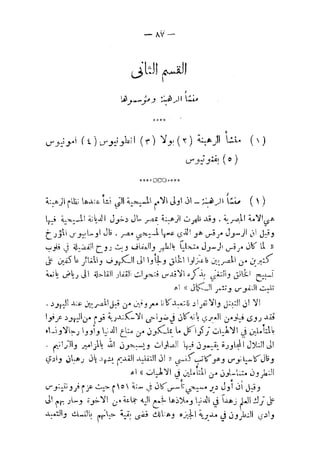 — ٨٧ —
القسم الثانى
منشأ الرهبنة ومؤسسوها
(١) منشأ الرهبنة (٢) بولا (٣) انطونيوس (٤) امونيوس
(٥) بفنوتيوس
(١) منشأ الرهبنة — ان اولى الامم المسيحية التى نشأ عندها نظام الرهبنة
هى الامة المصرية . وقد ظهرت الرهبنة بمصر حال دخول الديانة المسيحية فيها
وقيل ان الرسول مرقس هو الذى بمصر المسيحى . قال اوسابيوس المؤرخ
« لما كان مرقس الرسول متحلياً بالطهر والعفاف وبث روح الفضيلة فى قلوب
كثيرين من المصريين فاعتزلوا الخلق ولجأوا الى الكهوف والمغائر عاكفين على
تسبيح الخالق والتغنى بذكره الاقدس فتحولت القفار القاحلة الى رياض يانعة
تنبت النفوس وتثمر الكمال » اه
الا ان التبتل والانفراد للتعبد كانا معروفين من قبل المصريين عند اليهود .
فقد روى فيلومن العبرى بانه كان فى ضواحى الاسكندرية قوم من اليهود عرفوا
بالمتأملين فى الالهيات تركوا كل ما يملكون من متاع الدنيا وأووا رجالا ونساء
الى التلال المجاورة يقيمون فيها الصلوات ويسبحون الله بالمزامير والترانيم .
وقال كاسيانوس وهو كاتب كنسى « ان التقليد القديم يشهد بان رهبان وادى
النطرون متسلسلون من المتأملين فى الالهيات » اه
وقيل أن أول دير مسيحى تأسس كان فى سنة ١٥١ م حيث عزم فرونتينوس
على ترك العالم زهداً فى الدنيا وملاذها فجمع اليه جماعة من الاخوة وسار بهم الى
وادى النطرون فى مديرية الجيزه وهنالك قضى بقية حياتهم بالنسك والتعبد